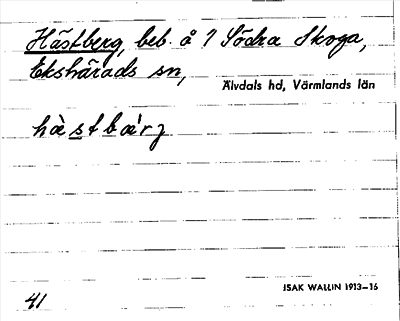 Hästberg, beb. å 1 Södra Skoga,
Ekshärads sn,
Älvdals hd, Värmlands län
hàstbár̨j
ISAK WALLIN 1913–16
41